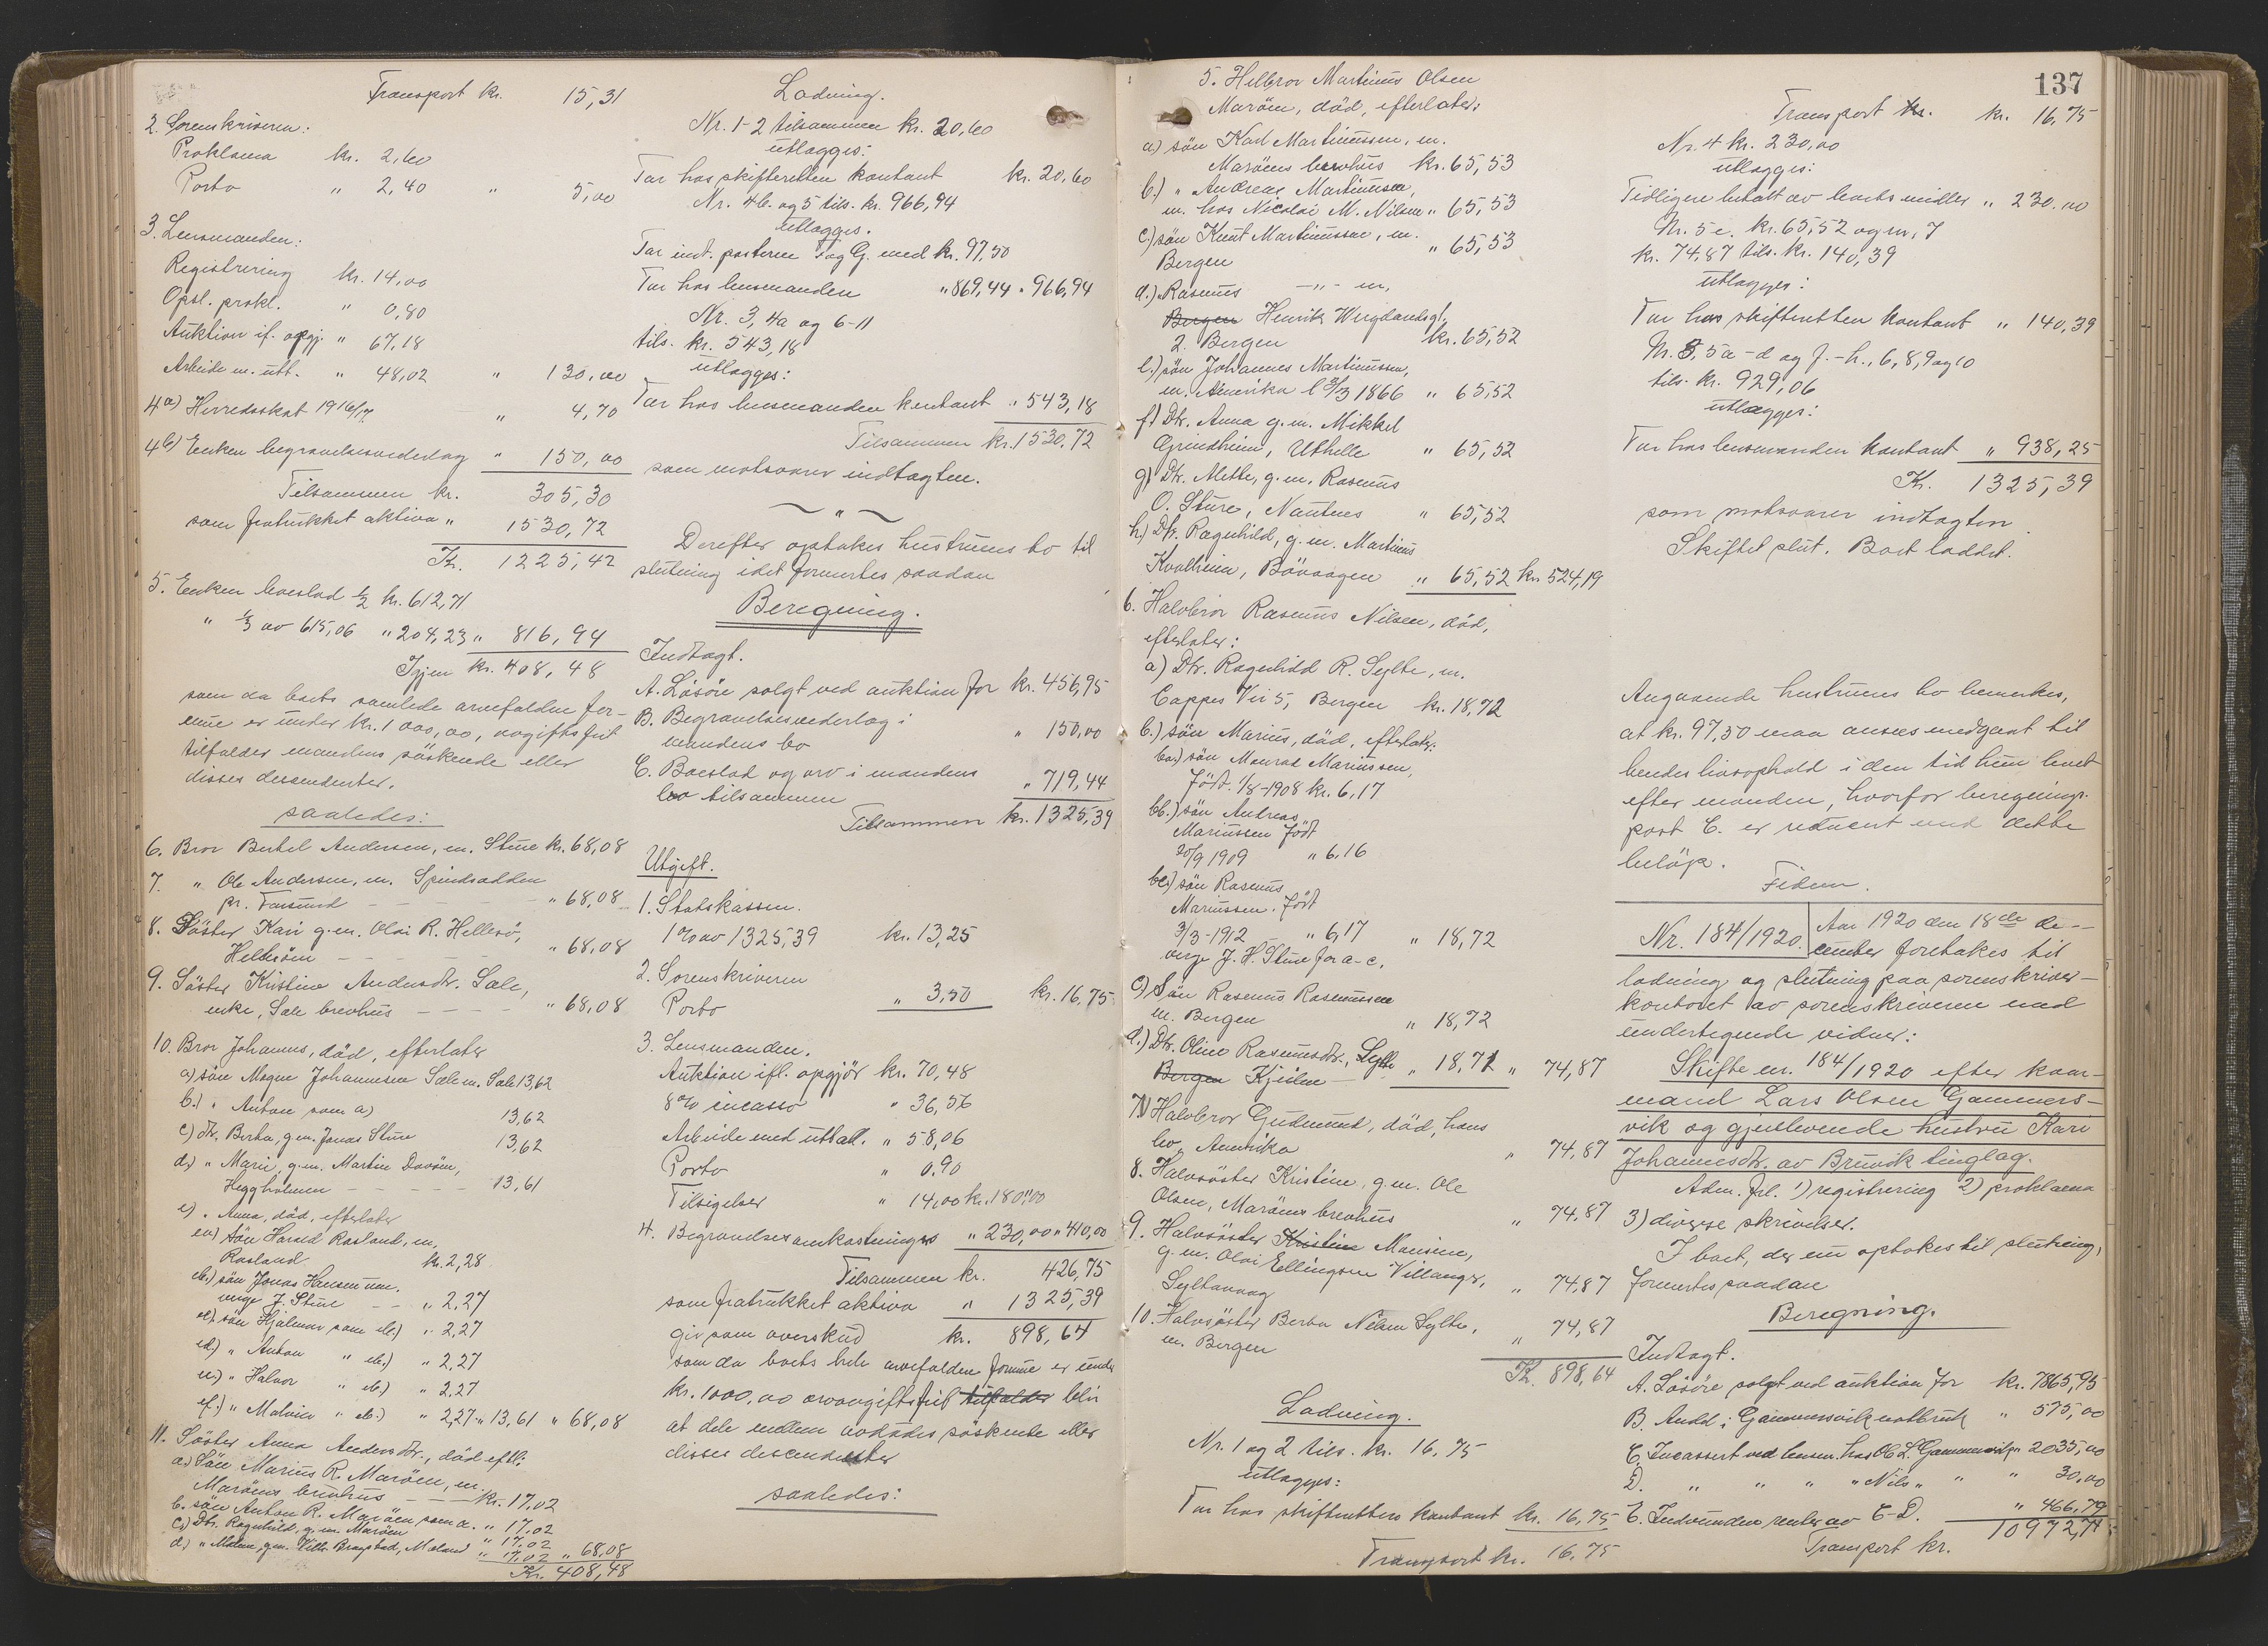 Transport kr. 15,31
2. Sorenskriveren:
Proklama kr. 2,60
Porto " 2,40 " 5,00
3. Lensmanden:
Registrering kr. 14,00
Opsl. prokl. " 0,80
Auktion if. opgj. " 67,18
Arbeide m. utl. " 48,02 " 130,00
4a) Herredsskat 1916/17. " 4,70
4b) Enken begravelsesvederlag " 150,00
Tilsammen kr. 305,30
som fratrukket aktiva " 1530,72
Kr. 1225,42
5. Enken boeslod 1/2 kr. 612,71
" 1/3 av 615,06 " 204,23 " 816,94
Igjen kr. 408,48
som da boets samlede arvefaldne for-
mue er under kr. 1000,00, avgiftsfrit
tilfalder mandens söskende eller
disses descendenter.
saaledes:
6. Bror Bertel Andersen, m. Sture kr. 68,08
7. " Ole Andersen, m. Spindsodden
pr. Farsund - - - " 68,08
8. Söster Kari g.m. Olai R. Hellesö,
Heldesöen - - - " 68,08
9. Söster Kristine Andersdtr. Sæle,
enke, Sæle brevhus - - - " 68,08
10. Bror Johannes, död, efterlater
a) sön Mogne Johannesen Sæle m. Sæle 13,62
b.) " Anton som a) 13,62
c) dtr. Berta, g.m. Jonas Sture 13,62
d.) " Marie, g.m. Martin Davöen,
Heggholmen - - - 13,61
e) " Anna, död, efterlater
ea) sön Harald Rasland, m.
Rasland kr. 2,28
eb.) sön Jonas Hansen um.
verge J. Sture - - " 2,27
ec) sön Hjalmar som eb.) " 2,27
ed) " Anton " eb.) " 2,27
ee) " Halvor " eb.) " 2,27
ef.) " Malvin " eb.) " 2,27 " 13,61 " 68,08
11. Söster Anna Andersdtr., död eftl:
a.) Sön Marius R. Maröen, m.
Maröens brevhus - - kr. 17,02
b. sön Anton R. Maröen som a. " 17,02
c.) Dtr. Ragnhild, g.m. Maröen " 17,02
d.) " Malene, g.m. Vilh. Bragstad, Moland " 17,02 " 68,08
Kr. 408,48
Lodning.
Nr. 1-2 tilsammen kr. 20,60
utlægges:
Tar hos skifteretten kontant kr. 20,60
Nr. 4b. og 5 tils. kr. 966,94
utlægges.
Tar indt. posterne F og G. med kr. 97,50
Tar hos lensmanden " 869,44 " 966,94
Nr. 3, 4a og 6-11
tils. kr. 543,18
utlægges:
Tar hos lensmanden kontant " 543,18
Tilsammen kr. 1530,72
som motsvarer indtægten.
Derefter optokes hustruens bo til
slutning idet formertes saadan
Beregning.
Indtægt.
A. Lösöre solgt ved auktion for kr. 455,95
B. Begravelsesvederlag i
mandens bo " 150,00
C. Boeslod og arv i mandens
bo tilsammen " 719,44
Tilsammen kr. 1325,39
Utgift.
1. Statskassen.
1% av 1325,39 kr. 13,25
2. Sorenskriveren
Porto " 3,50 kr. 16,75
3. Lensmanden.
Auktion ifl. opgjör kr. 70,48
8% incasso " 36,56
Arbeide med utbetal. " 58,06
Porto " 0.90
Tilsigelser " 14,00 kr. 180,00
4. Begravelsesomkostninger " 230,00 " 410,00
Tilsammen kr. 426,75
som fratrukket aktiva " 1325,39
gir som overskud kr. 898,64
som da boets hele arvefaldne formue er under
kr. 1000,00 arveavgiftsfrit tilfalder blir
at dele mellem avdödes söskende eller
disses descendenter
saaledes:
137
5. Helbror Martinus Olsen
Maröen, död, efterlater:
a) sön Karl Martinussen, m.
Maröens brevhus kr. 65,53
b.) " Andreas Martinussen,
m. hos Nicolai M. Nilsen " 65,53
c.) sön Knut Martinussen, m.
Bergen " 65,53
d.) " Rasmus -"- m.
Bergen Henrik Wergelandsgt.
2. Bergen kr. 65,52
e.) sön Johannes Martinussen,
m. Amerika f 3/3 1866 " 65,52
f.) Dtr. Anna g.m. Mikkel
Grindheim, Uthelle " 65,52
g) Dtr. Mette, g.m. Rasmus
O. Sture, Nautnes " 65,52
h.) Dtr. Ragnhild, g.m. Martinus
Kvalheim, Bövaagen " 65,52 kr. 524,19
6. Halvbror Rasmus Nilsen, död,
efterlater:
a) Dtr. Ragnhild R. Sylte, m.
Cappes Vei 5, Bergen kr. 18,72
b.) sön Marius, död, efterlater:
ba.) sön Monrad Mariussen,
Födt. 1/8-1908 kr. 6,17
bb.) sön Andreas
Mariussen födt
20/9 1909 " 6,16
bc.) sön Rasmus
Mariussen. födt
3/3-1912 " 6,17 " 18,72
verge J. H. Sture for a-c.
c) Sön Rasmus Rasmussen
m. Bergen " 18,72
d.) Dtr. Oline Rasmusdtr. Sylte
Bergen Kjeilen - " 18,71 " 74,87
7. Halvbror Gudmund, död, hans
bo, Amerika " 74,87
8. Halvsöster Kristine, g.m. Ole
Olsen, Maröens brevhus " 74,87
9. Halvsöster Kristine Monsine,
g.m. Olai Ellingsen Villanger,
Syltavaag " 74,87
10. Halvsöster Berta Nilsen Sylte,
m. Bergen " 74,87
Kr. 898,64
Lodning.
Nr. 1 og 2 tils. kr. 16,75
utlægges:
Tar hos skifteretten kontant kr. 16,75
Transport kr. 16,75
Transport kr. kr. 16,75
Nr. 4 kr. 230,00
utlægges:
Tidligere betalt av boets midler " 230.00
Nr. 5e. kr. 65,52 og nr. 7
kr. 74,87 tils. kr. 140,39
utlægges:
Tar hos skifteretten kontant " 140,39
Nr. 3, 5a-d og f.-h., 6, 8, 9 og 10
tils. kr. 929,06
utlægges:
Tar hos lensmanden kontant " 938,25
Kr. 1325,39
som motsvarer indtægten.
Skiftet slut. Boet loddet.
Angaaende hustruens bo bemerkes,
at kr. 97,50 maa ansees medgaat til
hendes livsophold i den tid hun levet
efter manden, hvorfor beregnings-
post C. er reducert med dette
belöp.
Fidem.
Nr. 184/1920. Aar 1920 den 18de de-
cember foretokes til
lodning og slutning paa sorenskriver-
kontoret av sorenskriveren med
undertegnede vidner:
Skifte nr. 184/1920 efter kaar-
mand Lars Olsen Gammers-
vik og gjenlevende hustru Kari
Johannesdtr. av Bruvik tinglag.
Adm. frl. 1) registrering 2) proklama
3) diverse skrivelser.
I boet, der nu optokes til slutning,
formertes saadan
Beregning.
Indtægt.
A. Lösöre solgt ved auktion for kr. 7865,95
B. Andel i Gammersvik notbruk " 575,00
C. Incassert ved lensm. hos Ole L. Gammersvik " 2035,00
D. " " " " Nils " " " 30,00
E. Indvundne renter av C-D. " 466,79
Transport kr. 10972,74